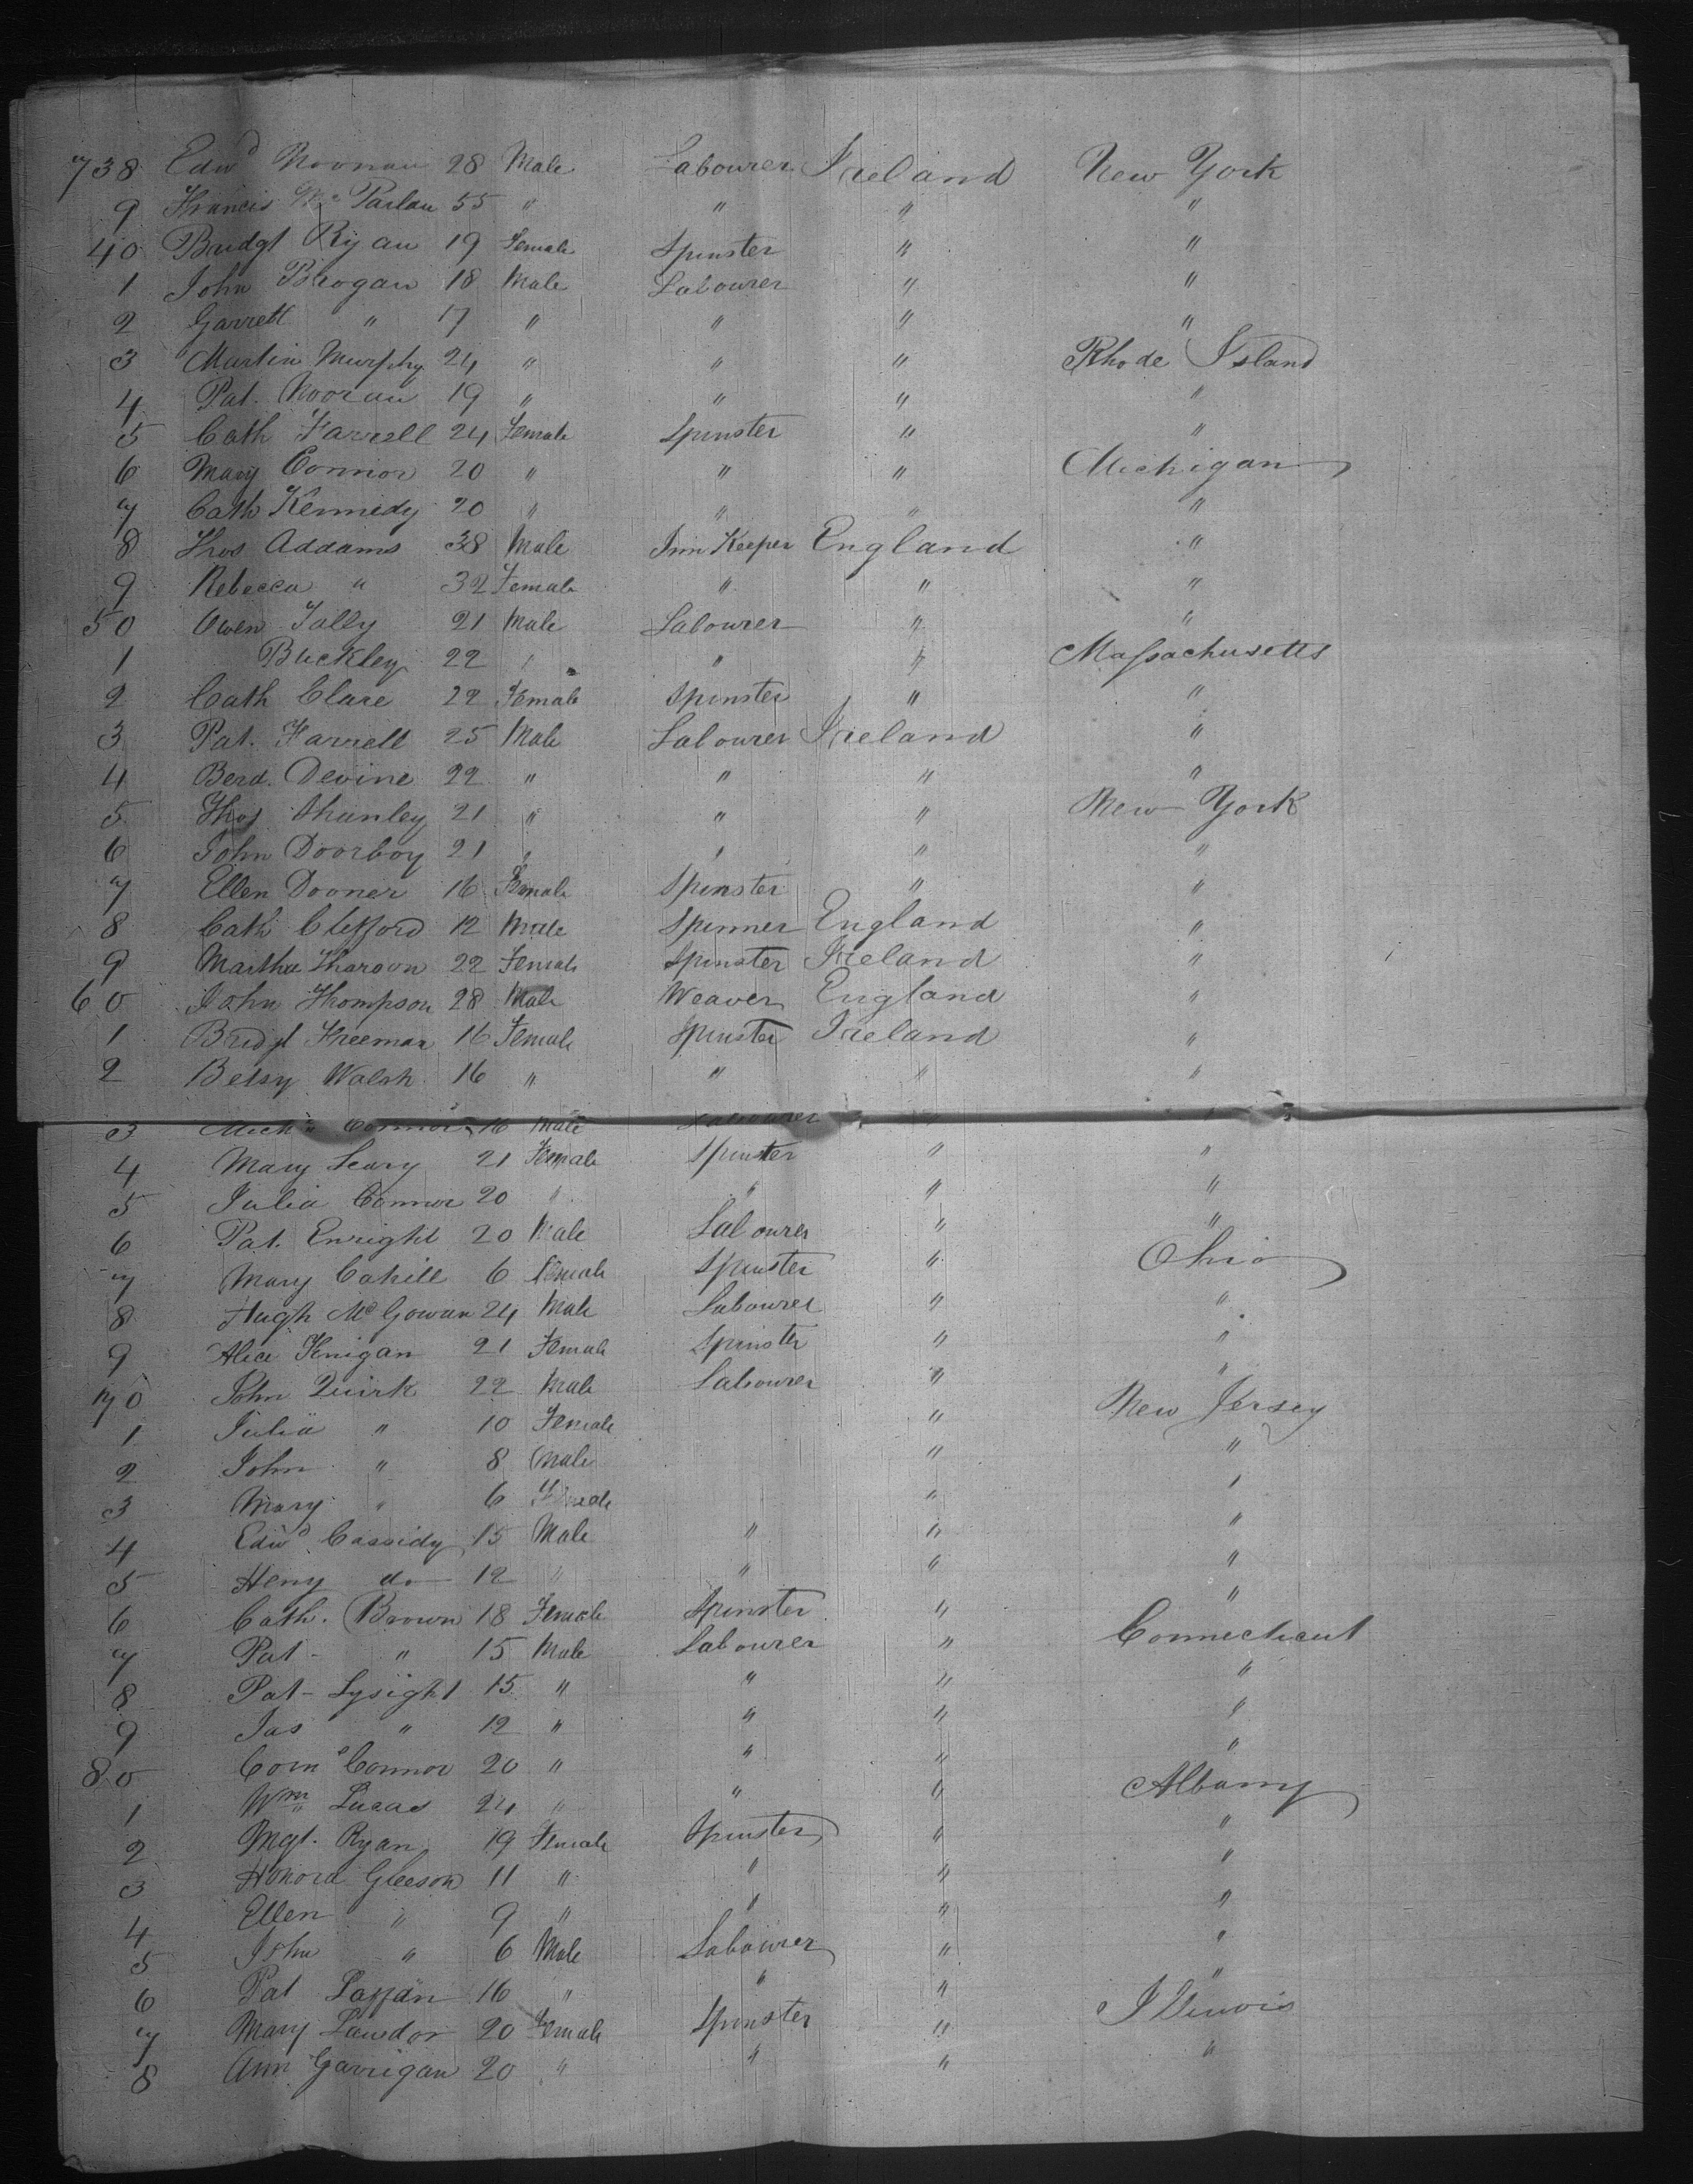 738 Edwd Noonan 28 Male Labourer Ireland New York
9 Francis Mc Parlan 55 " " " "
40 Bridgt Ryan 19 Female Spinster " "
1 John Brogan 18 Male Labourer " "
2 Garrett " 17 " " " "
3 Martin Murphy 24 " " " Rhode Island
4 Pat. Nooran 19 " " " "
5 Cath Farrell 24 Female Spinster " "
6 Mary Connor 20 " " " Michigan
7 Cath Kennedy 20 " " " "
8 Thos Addams 38 Male Inn Keeper England "
9 Rebecca " 32 Female " " "
50 Owen Tally 21 Male Labourer " "
1 Buckley 22 " " " Massachusetts
2 Cath Clare 22 Female Spinster " "
3 Pat. Farrell 25 Male Labourer Ireland "
4 Berd. Devine 22 " " " "
5 Thos Shanley 21 " " " New York
6 John Doorboy 21 " " " "
7 Ellen Dooner 16 Female Spinster " "
8 Cath Clifford 12 Male Spinner England "
9 Martha 22 Female Spinster Ireland "
60 John Thompson 28 Male Weaver England "
1 Bridgt Freeman 16 Female Spinster Ireland "
2 Betsy Walsh 16 " " " "
3 Michl Connor 16 Male Labourer " "
4 Mary Leary 21 Female Spinster " "
5 Julia Connor 20 " " " "
6 Pat. Enright 20 Male Labourer " "
7 Mary Cahill 6 Female Spinster " Ohio
8 Hugh Mc Gowan 24 Male Labourer " "
9 Alice Finigan 21 Female Spinster " "
70 John Quirk 22 Male Labourer " "
1 Julia " 10 Female " New Jersey
2 John " 8 Male " "
3 Mary " 6 Female " "
4 Edwd Cassidy 15 Male " " "
5 Henry do 12 " " " "
6 Cath. Brown 18 Female Spinster " "
7 Pat - " 15 Male Labourer " Connecticut
8 Pat - Lysight 15 " " " "
9 Jas " 12 " " " "
80 Corns Connor 20 " " " "
1 Wm Lucas 24 " " " Albany
2 Mgt. Ryan 19 Female Spinster " "
3 Honora Gleeson 11 " " " "
4 Ellen " 9 " " " "
5 John " 6 Male Labourer " "
6 Pat Laffan 16 " " " "
7 Mary Lawdor 20 Female Spinster " Illinois
8 Ann Garrigan 20 " " " "